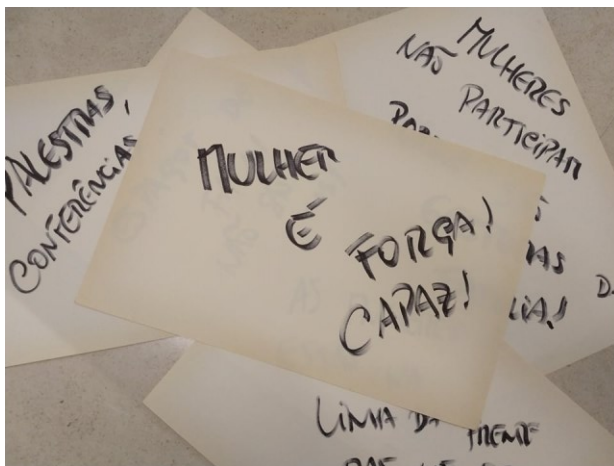 PALESTRAS,
CONFERÊNCIAS
MULHER
É
FORÇA!
CAPAZ!
MULHERES
NÃO PARTICIPAM
LINHA DA FRENTE